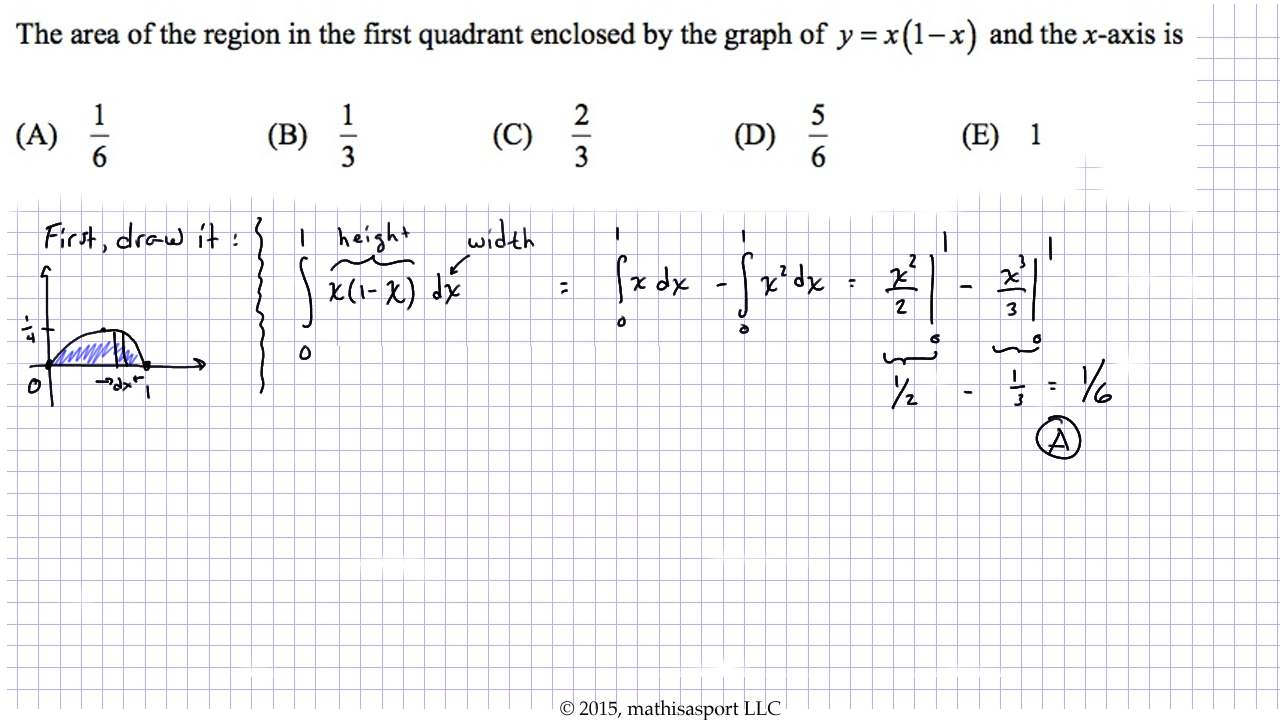 The area of the region in the first quadrant enclosed by the graph of y = x(1−x) and the x-axis is
(A) 1/6 (B) 1/3 (C) 2/3 (D) 5/6 (E) 1
First, draw it :
1/4
0 →dx← 1
height width
∫₀¹ x(1-x) dx = ∫₀¹ x dx - ∫₀¹ x² dx = x²/2 |₀¹ - x³/3 |₀¹
1/2 - 1/3 = 1/6
A
© 2015, mathisasport LLC